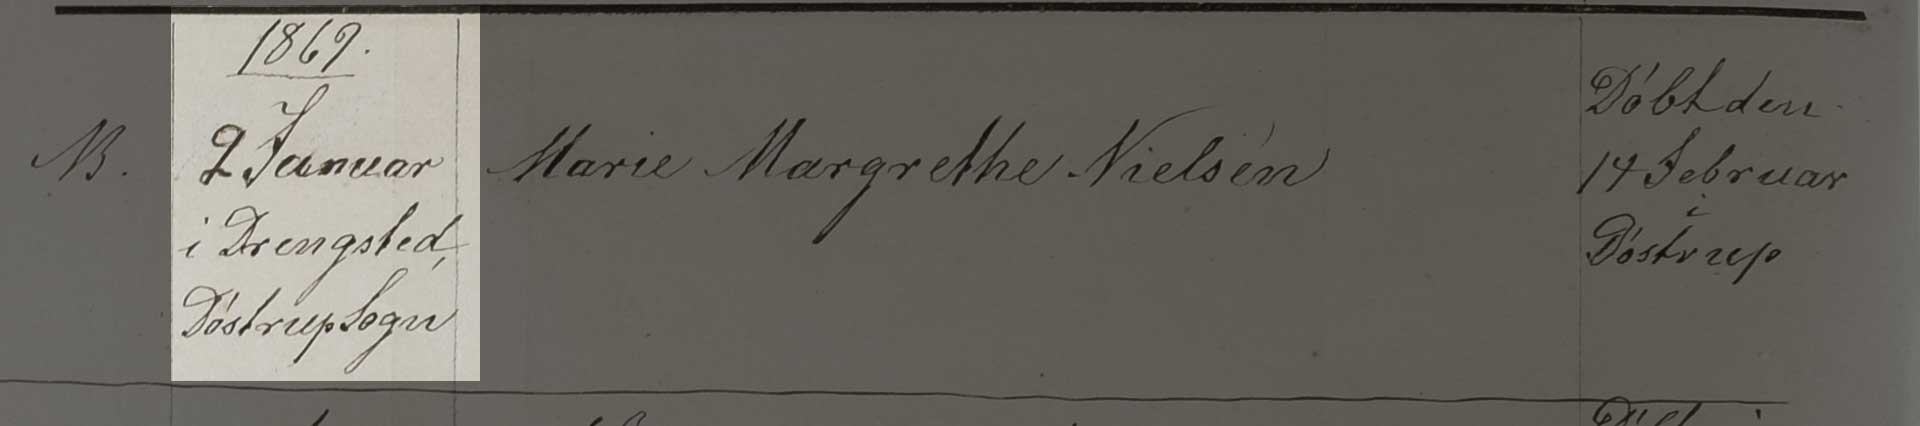 1869.
NB.
2 Januar
i Drengsted,
Döstrup Sogn
Marie Margrethe Nielsen
Döbt den
14 Februar
i
Döstrup